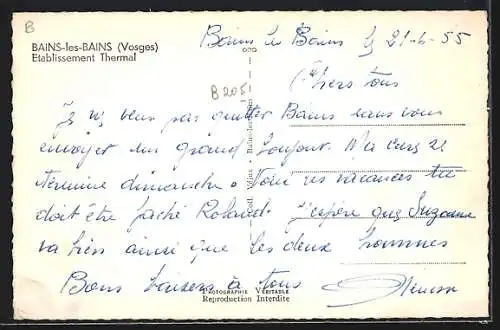 B
BAINS-les-BAINS (Vosges)
Etablissement Thermal
Bains les Bains 21-6-55
B 205
Chers tous
Je ne veux pas quitter Bains sans vous
envoyer un grand bonjour. Ma cure se
termine dimanche. Voici les vacances tu
doit être faché Roland. J'espère que Suzanne
va bien ainsi que les deux hommes
Bons baisers à tous
PHOTOGRAPHIE VÉRITABLE
Reproduction Interdite